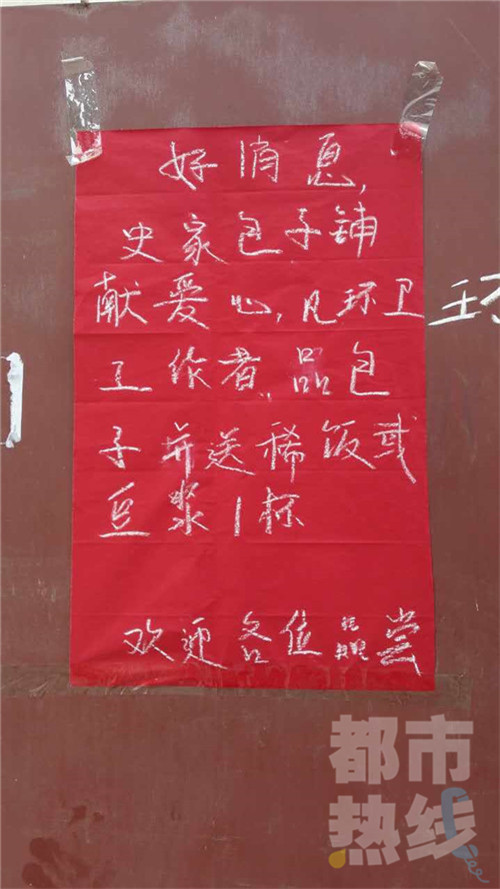 好消息,
史家包子铺
献爱心,凡环卫
工作者,品包
子并送稀饭或
豆浆1杯
欢迎各位品尝
都市
热线